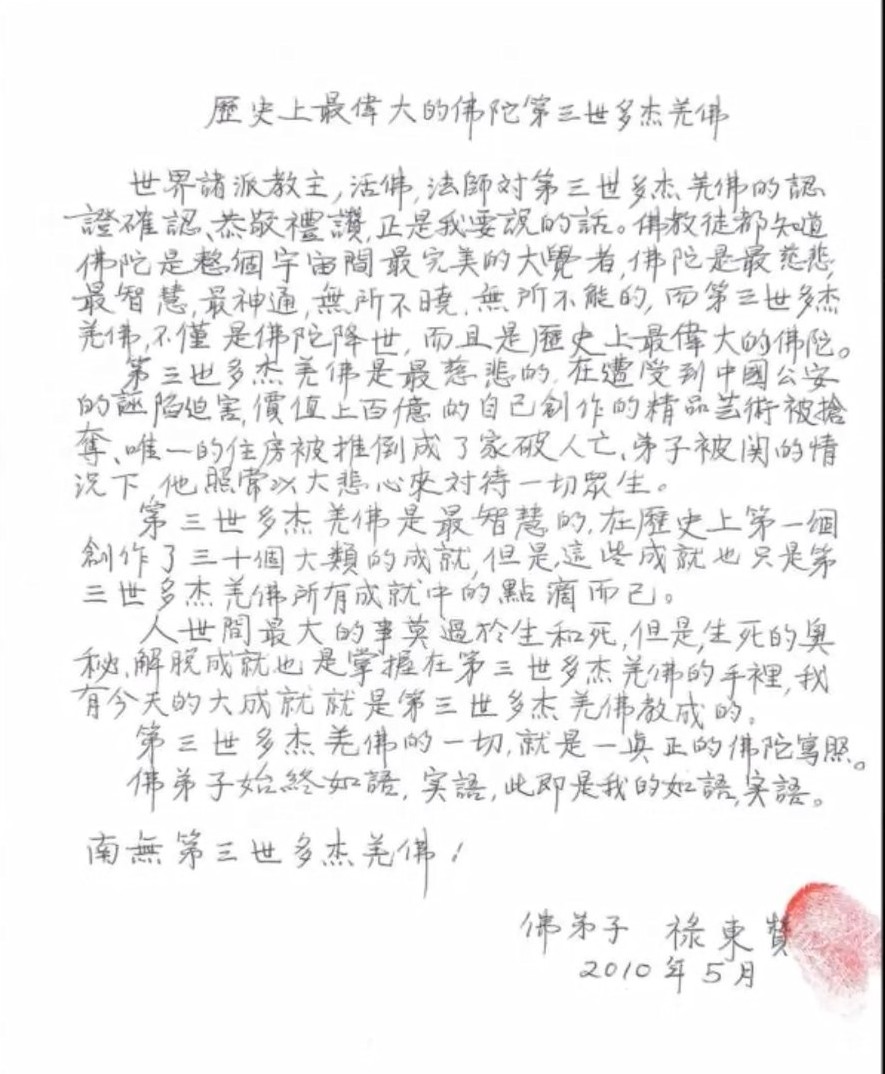 歷史上最偉大的佛陀第三世多杰羌佛
世界諸派教主,活佛,法師対第三世多杰羌佛的認
證確認、恭敬禮讚,正是我要說的話。佛教徒都知道
佛陀是整個宇宙間最完美的大覺者,佛陀是最慈悲,
最智慧,最神通,無所不曉,無所不能的,而第三世多杰
羌佛,不僅是佛陀降世,而且是歷史上最偉大的佛陀。
第三世多杰羌佛是最慈悲的,在遭受到中國公安
的誣陷迫害,價值上百億的自己創作的精品芸術被搶
奪、唯一的住房被推倒成了家破人亡、弟子被関的情
況下,他照常以大悲心來対待一切眾生。
第三世多杰羌佛是最智慧的,在歷史上第一個
創作了三十個大類的成就,但是,這些成就也只是第
三世多杰羌佛所有成就中的點滴而已。
人世間最大的事莫過於生和死,但是,生死的奧
秘,解脱成就也是掌握在第三世多杰羌佛的手裡,我
有今天的大成就就是第三世多杰羌佛教成的。
第三世多杰羌佛的一切,就是一真正的佛陀寫照。
佛弟子始終如語,実語,此即是我的如語,実語。
南無第三世多杰羌佛!
佛弟子 祿東贊
2010年5月